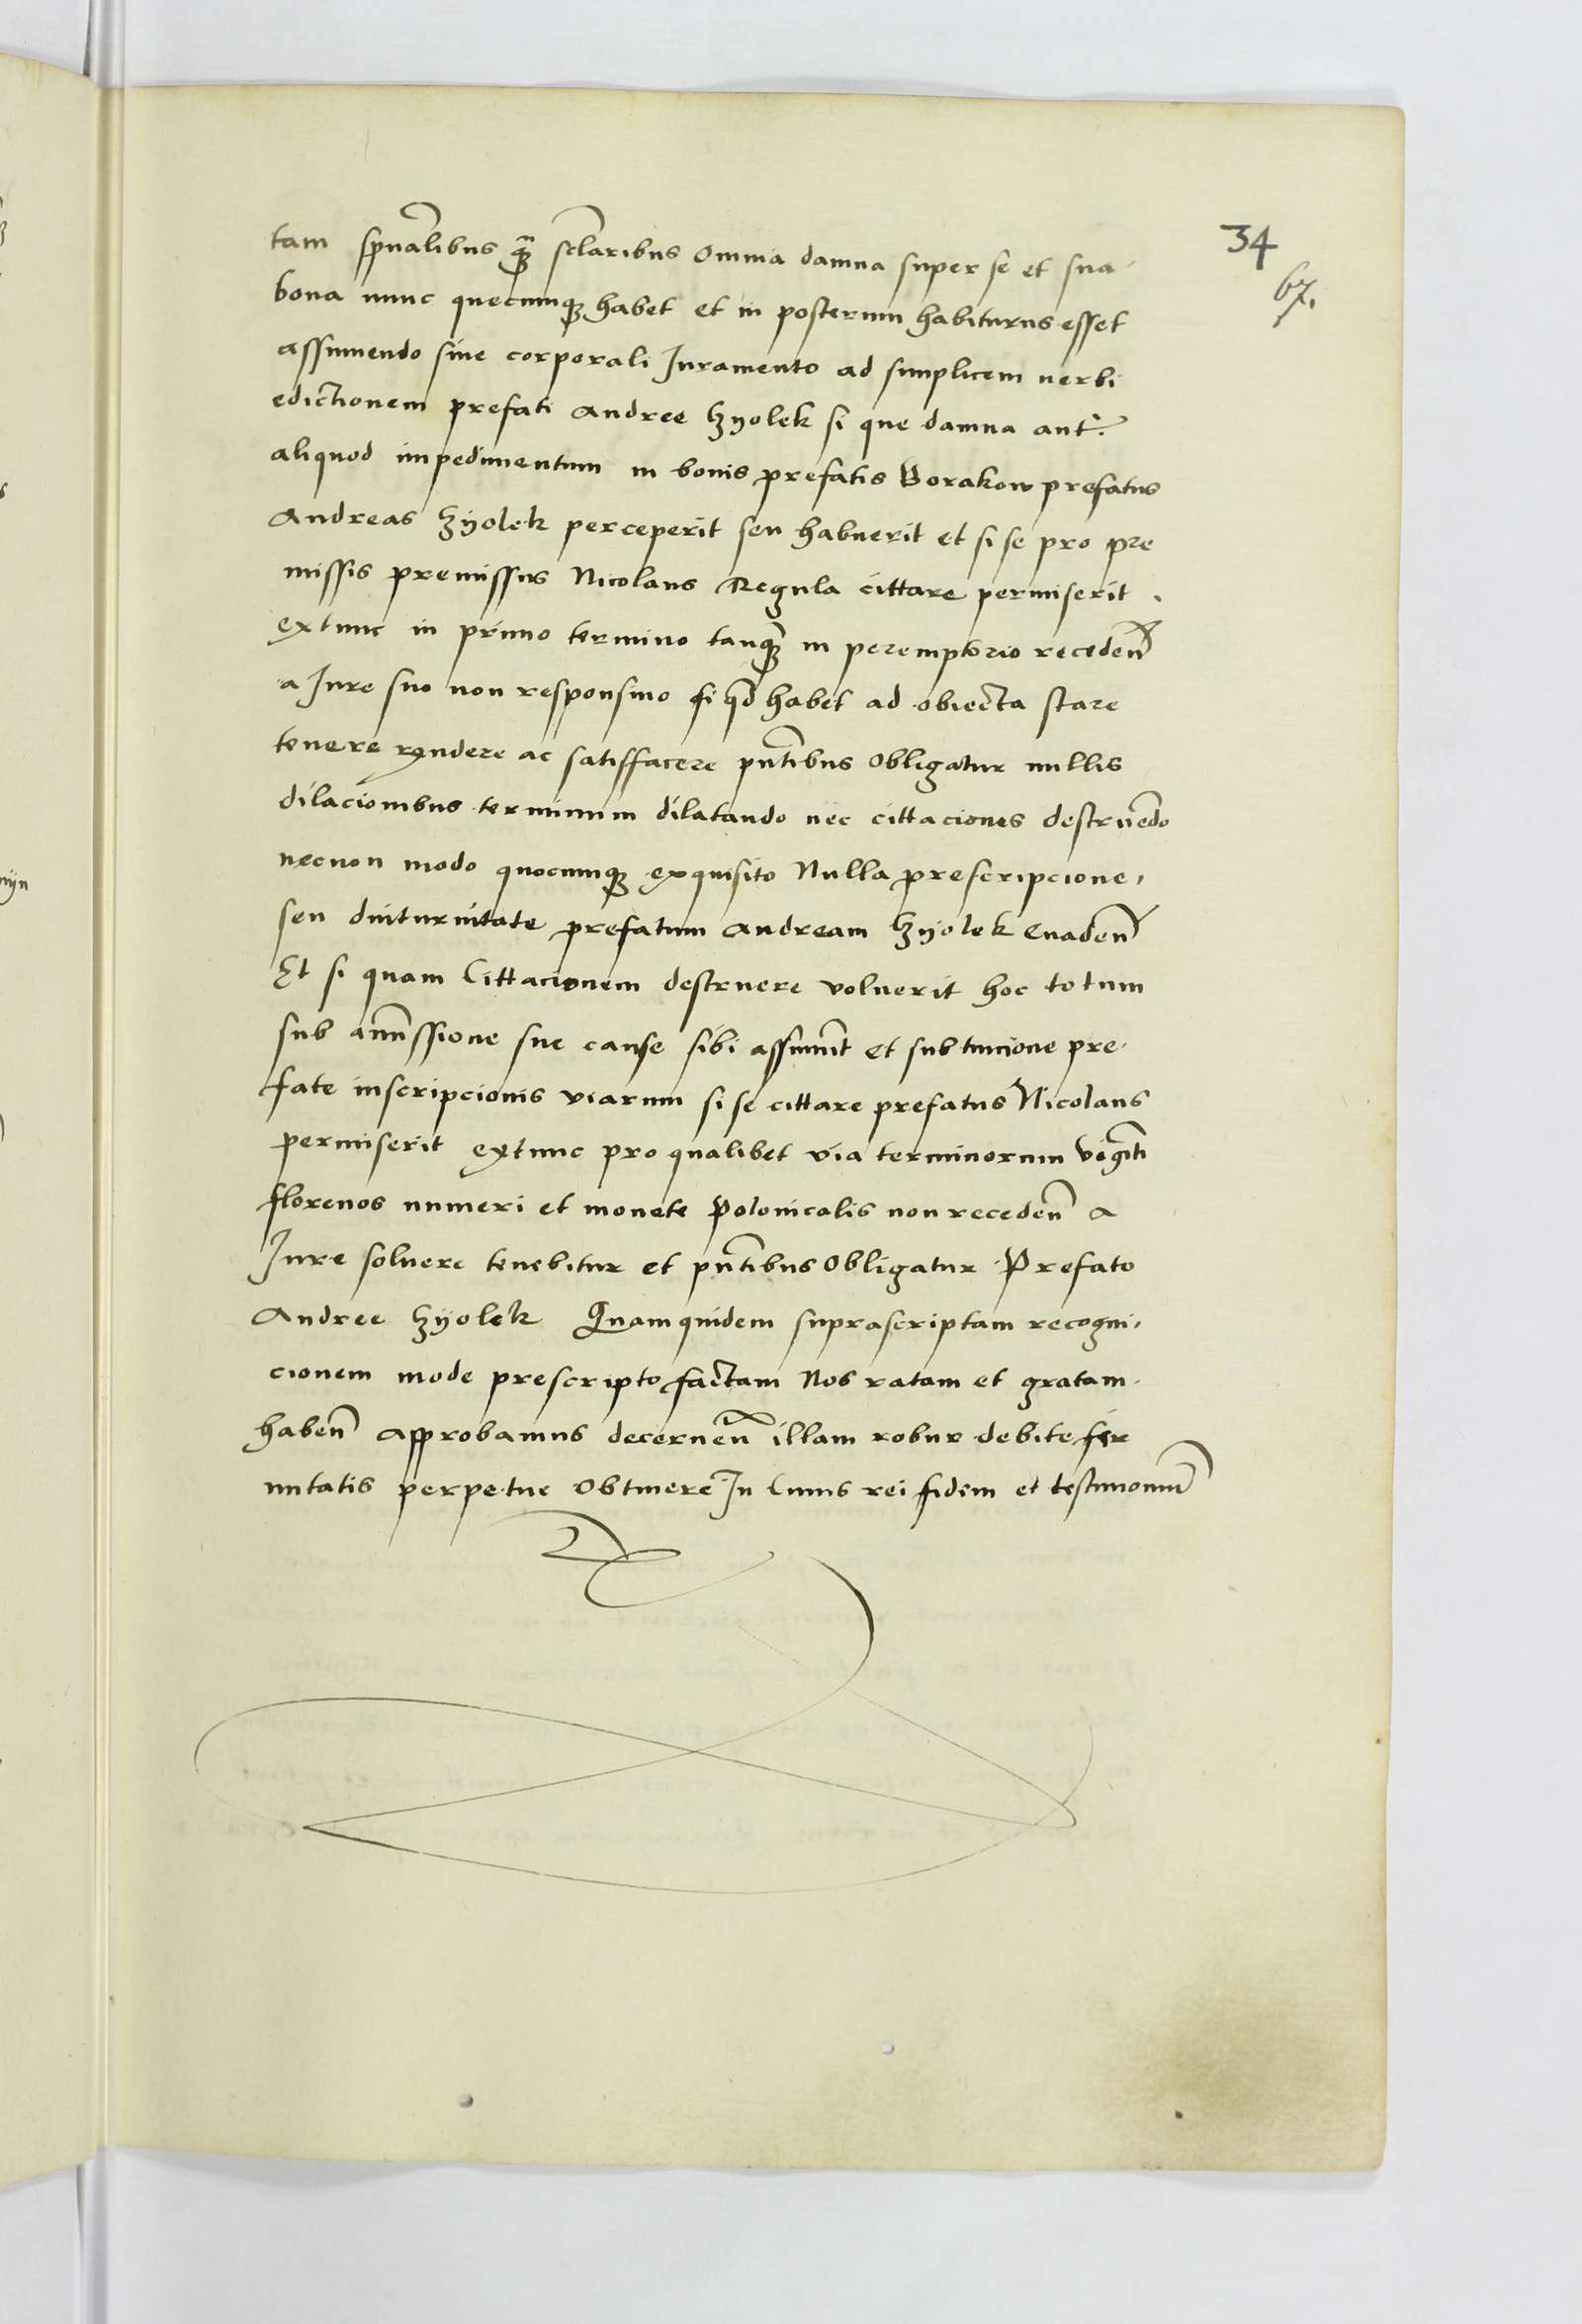 34
67.
tam spũalibus q̃ sclaribus omnia damna super se et sua
bona nunc quecunq̃ habet et in posterum habiturus esset
assumendo sine corporali Iuramento ad simplicem verbi
edictionem prefati Andree Zyolek si que damna aut
aliquod impedimentum in bonis prefatis Borakow prefatus
Andreas Zyolek perceperit seu habuerit et si se pro pre
missis premissus Nicolaus Regula cittare permiserit
extunc in primo termino tanq̃ in peremptorio recedeñ
a Iure suo non responsiuo si qd habet ad obiecta stare
tenere rñdere ac satisffacere pñtibus obligatur nullis
dilacionibus terminum dilatando nec cittaciones destruẽdo
necnon modo quocunq̃ exquisito Nulla prescripcione
seu diuturnitate prefatum Andream Zyolek euadeñ
Et si quam Cittacionem destruere voluerit hoc totum
sub amissione sue cause sibi assumit et sub tuicione pre
fate inscripcionis viarum si se cittare prefatus Nicolaus
permiserit extunc pro qualibet via terminorum Viginti
florenos numeri et monete Polonicalis non recedeñ a
Iure soluere tenebitur et pñtibus obligatur Prefato
Andree Zyolek Quamquidem suprascriptam recogni
cionem mode prescripto factam Nos ratam et gratam
habeñ approbamus decerneñ illam robur debite fir
mitatis perpetue obtinere In Cuius rei fidem et testimoniũ